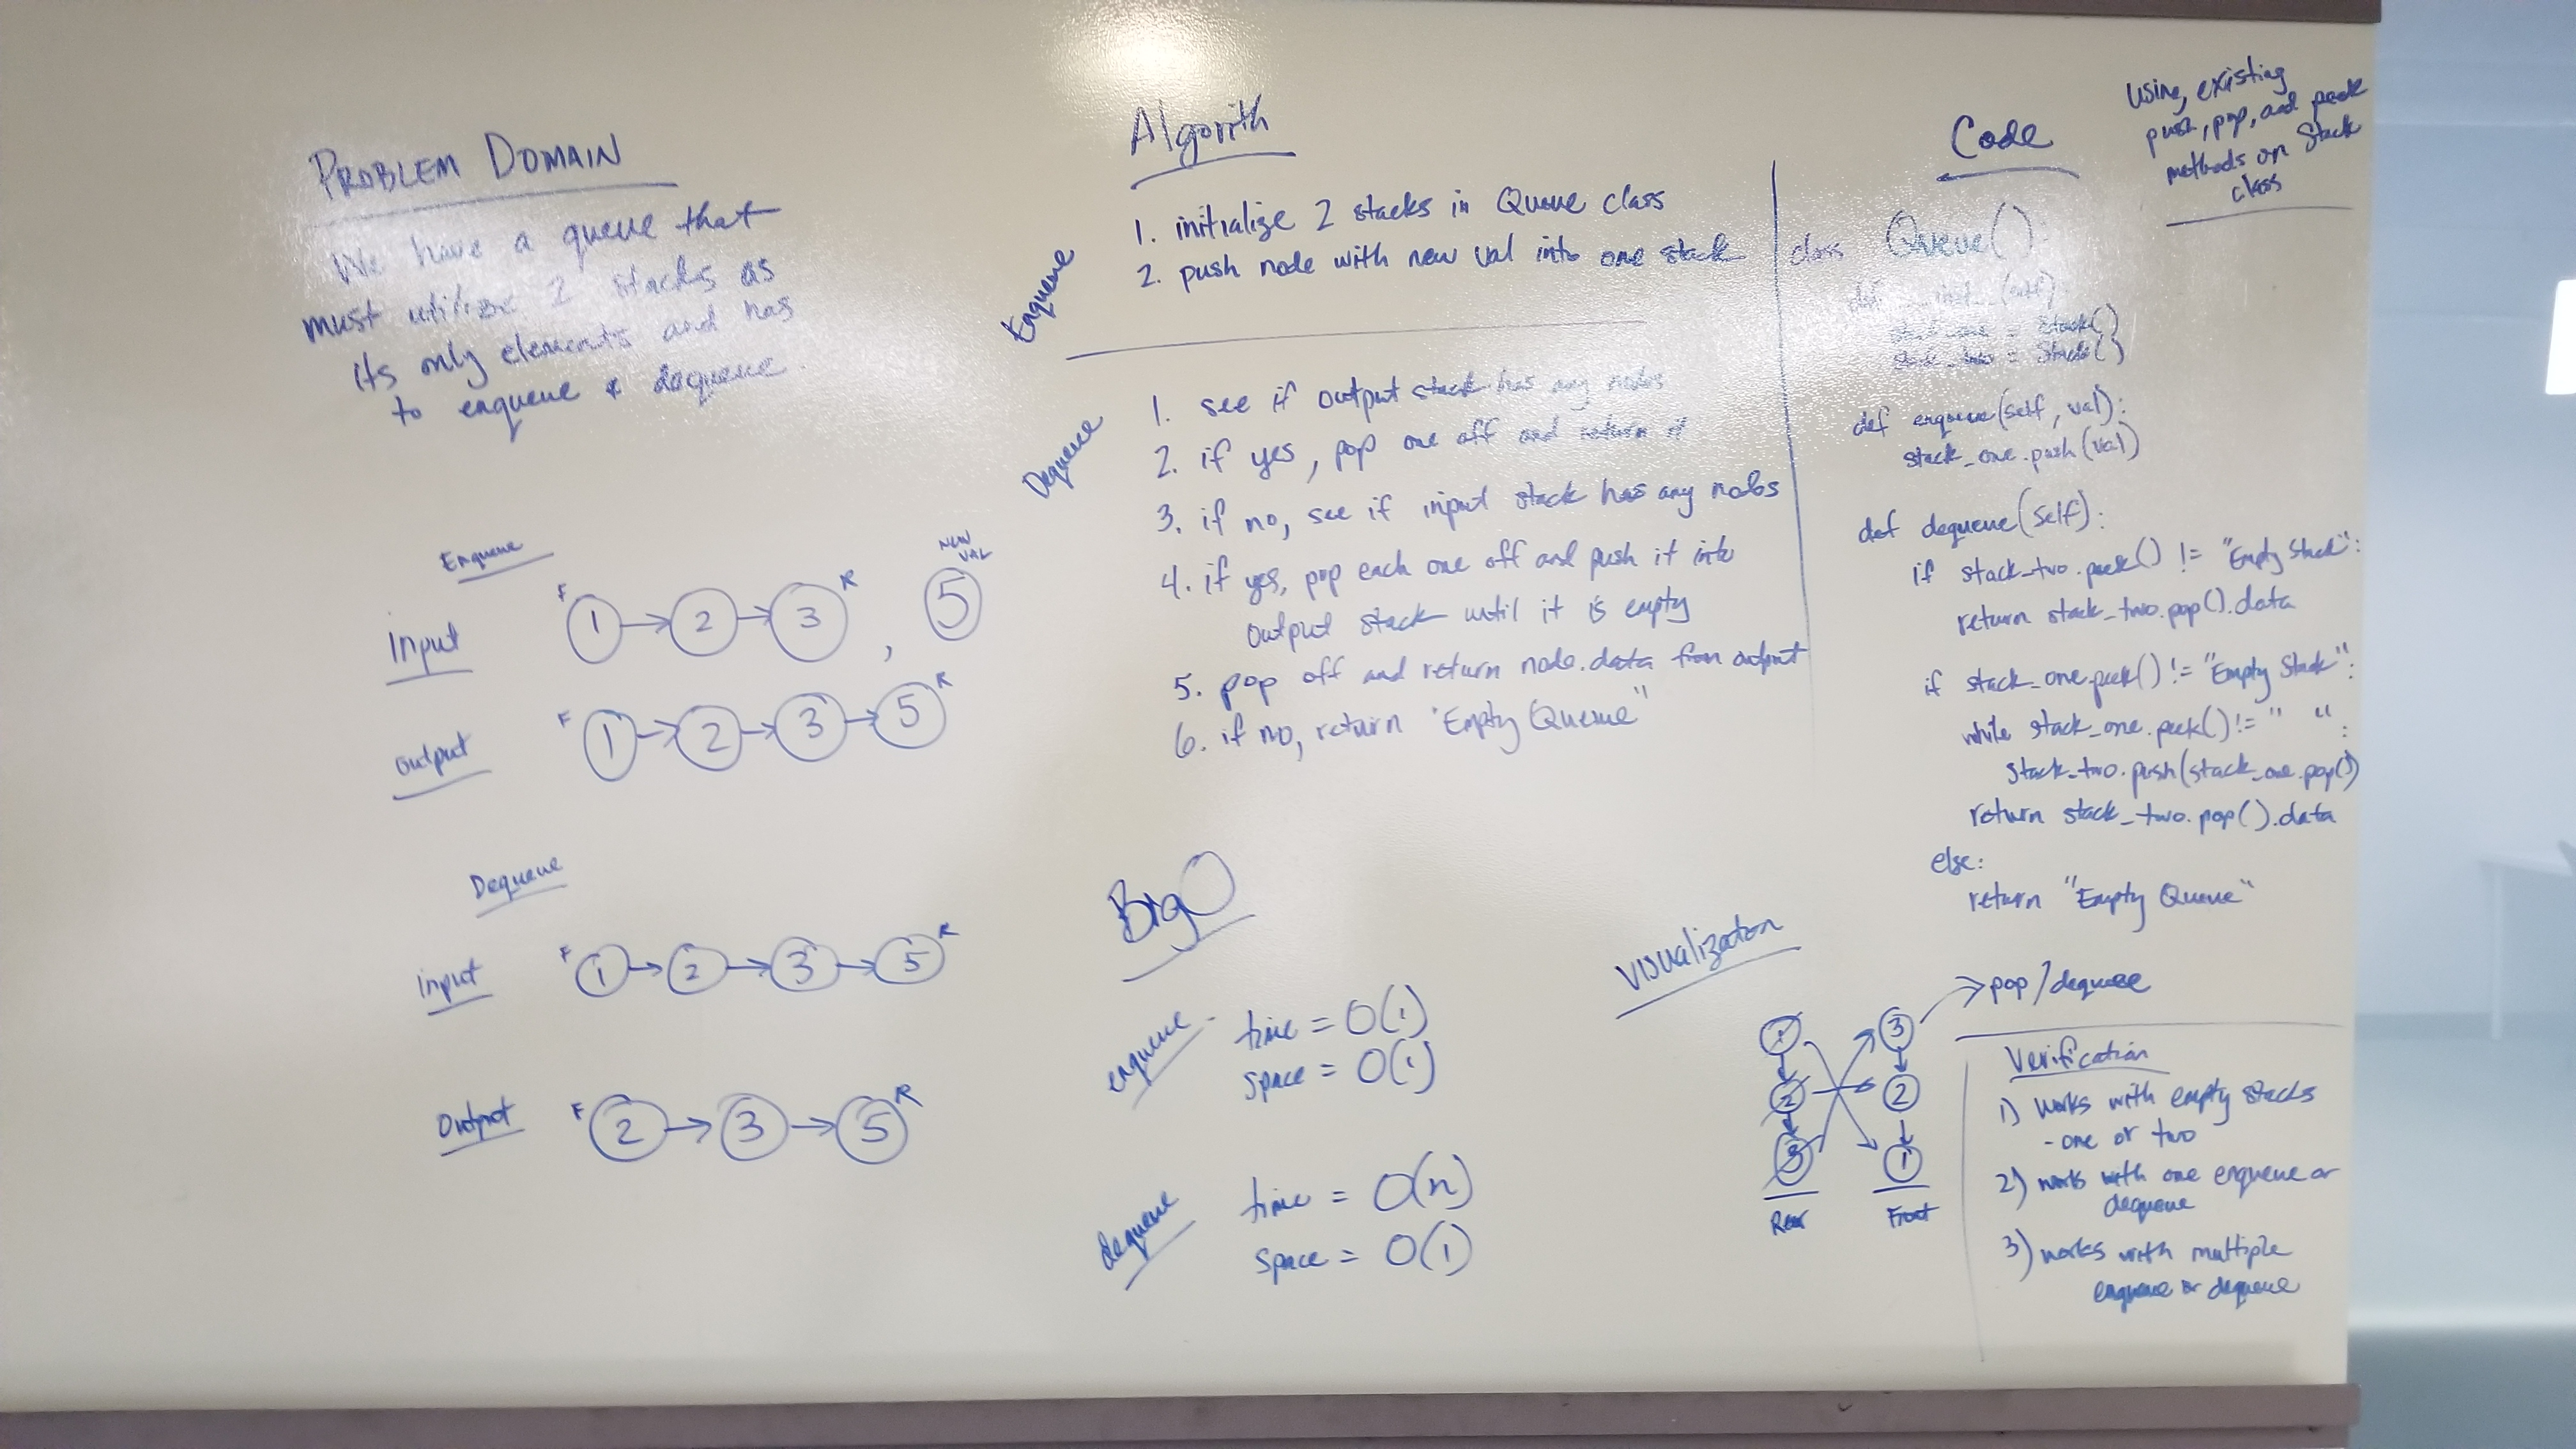 PROBLEM DOMAIN
We have a queue that
must utilize 2 stacks as
its only elements and has
to enqueue & dequeue.
Enqueue
Input
F 1 → 2 → 3 R , 5 NEW VAL
Output
F 1 → 2 → 3 → 5 R
Dequeue
Input
F 1 → 2 → 3 → 5 R
Output
F 2 → 3 → 5 R
Algorith
Enqueue
1. initialize 2 stacks in Queue class
2. push node with new val into one stack
Dequeue
1. see if output stack has any nodes
2. if yes, pop one off and return it
3. if no, see if input stack has any nodes
4. if yes, pop each one off and push it into
output stack until it is empty
5. pop off and return node.data from output
6. if no, return "Empty Queue"
Big O
enqueue -
time = O(1)
space = O(1)
dequeue
time = O(n)
space = O(1)
Code
Using existing
push, pop, and peek
methods on Stack
class
class Queue():
def __init__(self):
stack_one = Stack()
stack_two = Stack()
def enqueue(self, val):
stack_one.push(val)
def dequeue(self):
if stack_two.peek() != "Empty Stack":
return stack_two.pop().data
if stack_one.peek() != "Empty Stack":
while stack_one.peek() != " ":
stack_two.push(stack_one.pop())
return stack_two.pop().data
else:
return "Empty Queue"
Visualization
→ pop/dequeue
1 3
2 2
3 1
Rear Front
Verification
1) works with empty stacks
- one or two
2) works with one enqueue or
dequeue
3) works with multiple
enqueue or dequeue